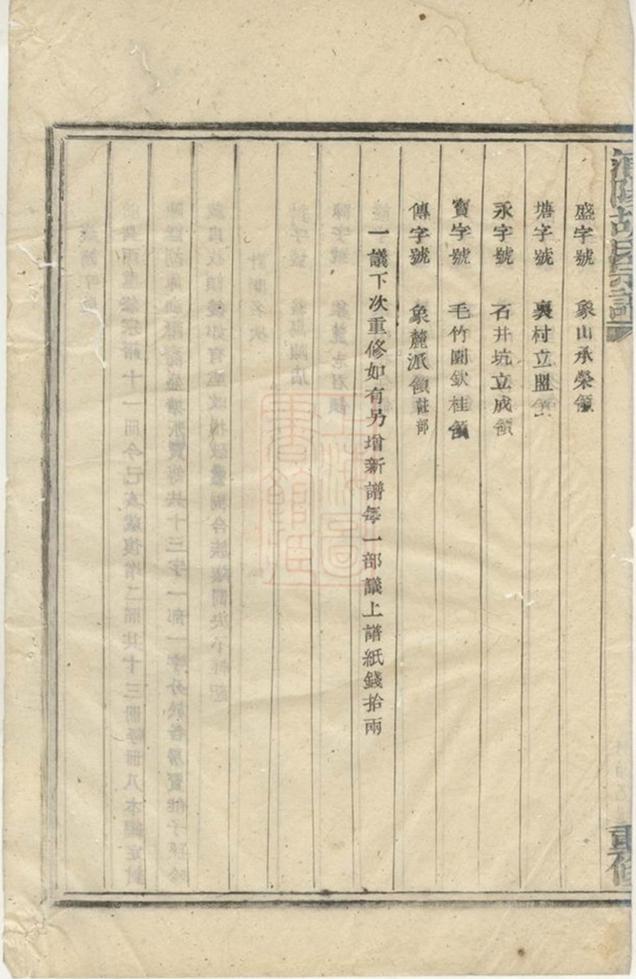 胡氏宗譜
重修
盛字號 象山承榮領
塘字號 裏村立盟
永字號 石井坑立成領
寶字號 毛竹園欽桂領
傳字號 象麓派領莊部
一議下次重修如有另增新譜每一部議上譜紙錢拾兩